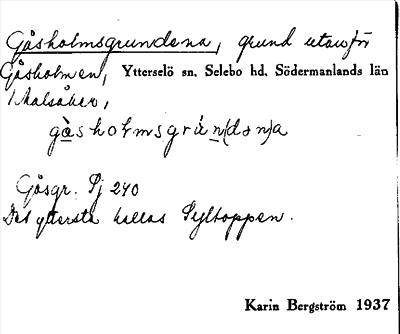 Gåsholmsgrundena, grund utanför
Gåsholmen, Ytterselö sn, Selebo hd, Södermanlands län
i Malsåker,
gåsholmsgrún(də n)a
Gåsgr. Sj 240
Det yttersta kallas Syltoppen.
Karin Bergström 1937